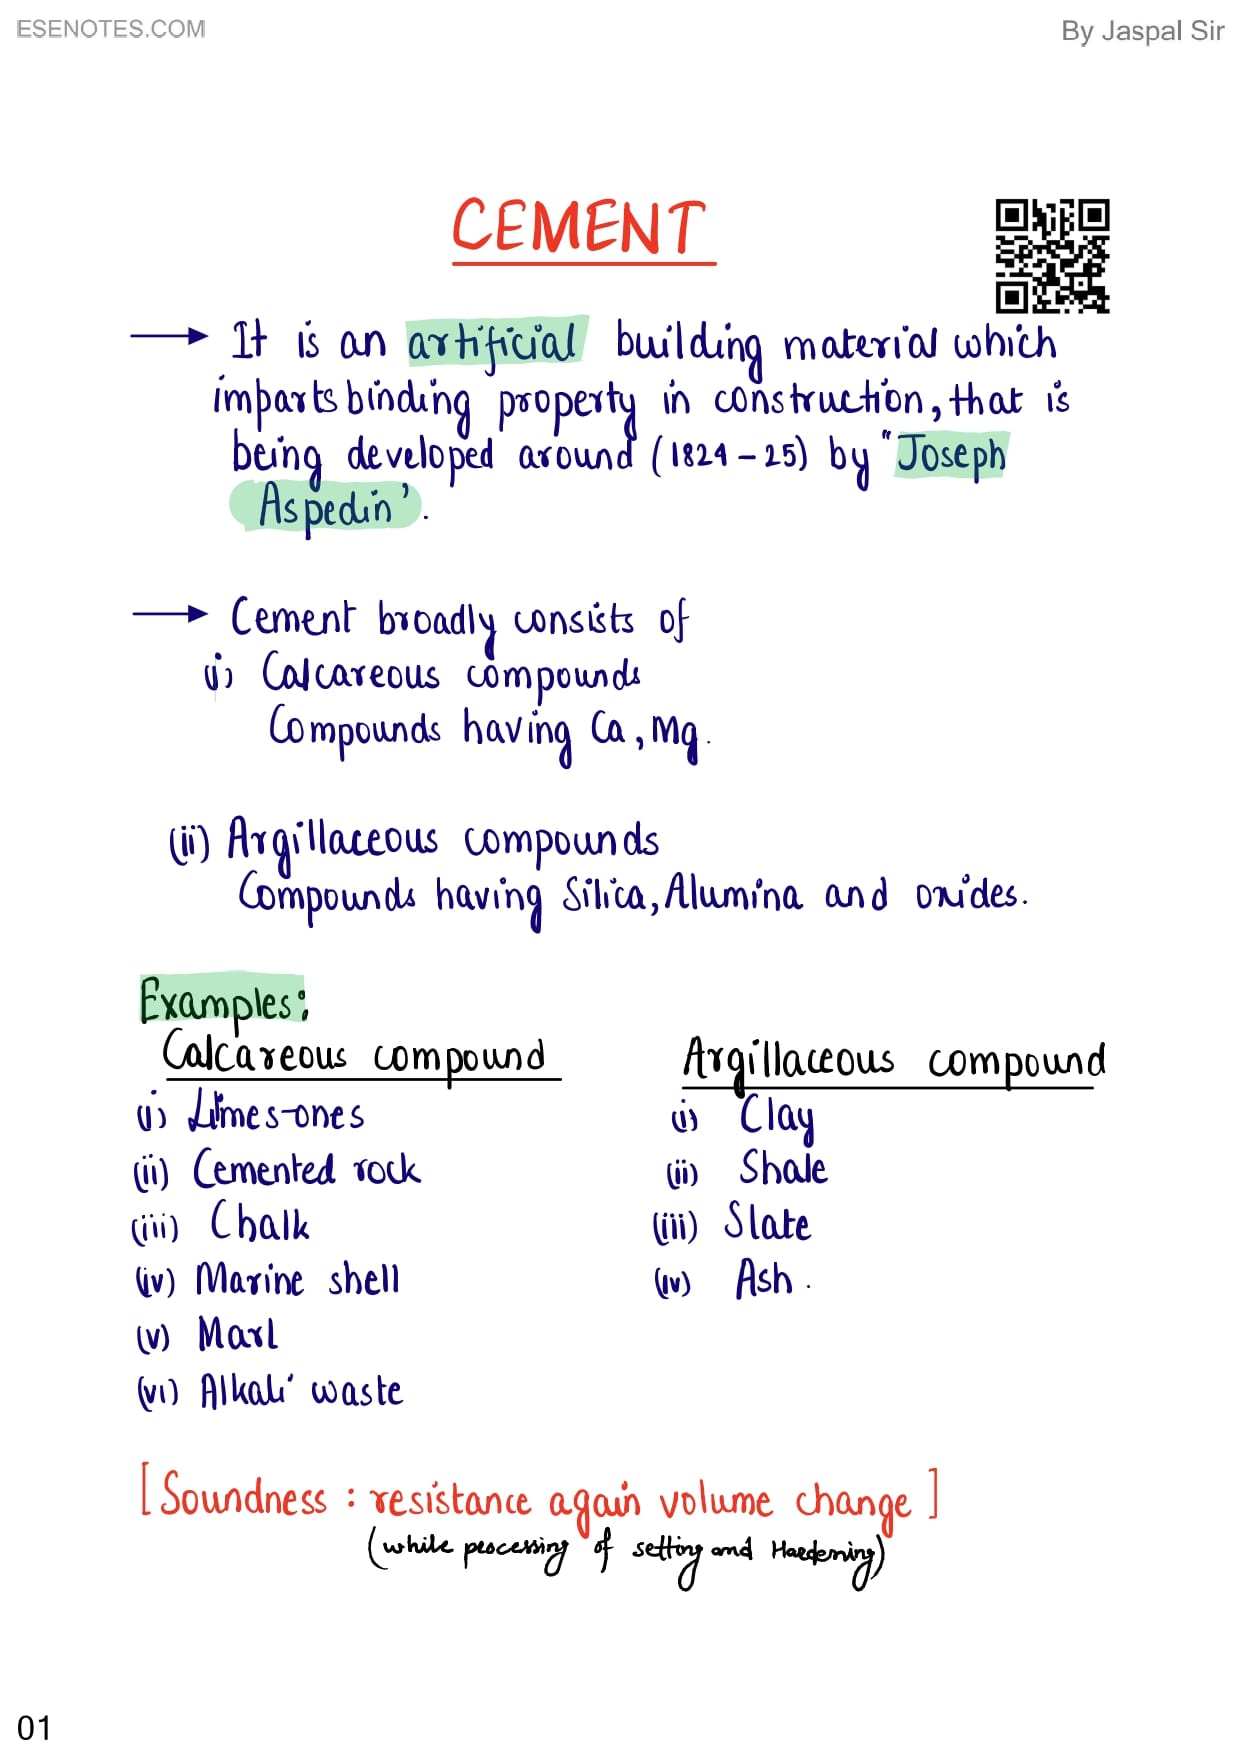 ESENOTES.COM
By Jaspal Sir
CEMENT
→ It is an artificial building material which
imparts binding property in construction, that is
being developed around (1824-25) by "Joseph
Aspedin'.
→ Cement broadly consists of
(i) Calcareous compounds
Compounds having Ca, Mg.
(ii) Argillaceous compounds
Compounds having Silica, Alumina and oxides.
Examples:
Calcareous compound
Argillaceous compound
(i) Limes-ones
(i) Clay
(ii) Cemented rock
(ii) Shale
(iii) Chalk
(iii) Slate
(iv) Marine shell
(iv) Ash.
(v) Marl
(vi) Alkali waste
[Soundness : resistance again volume change]
(while processing of setting and Hardening)
01